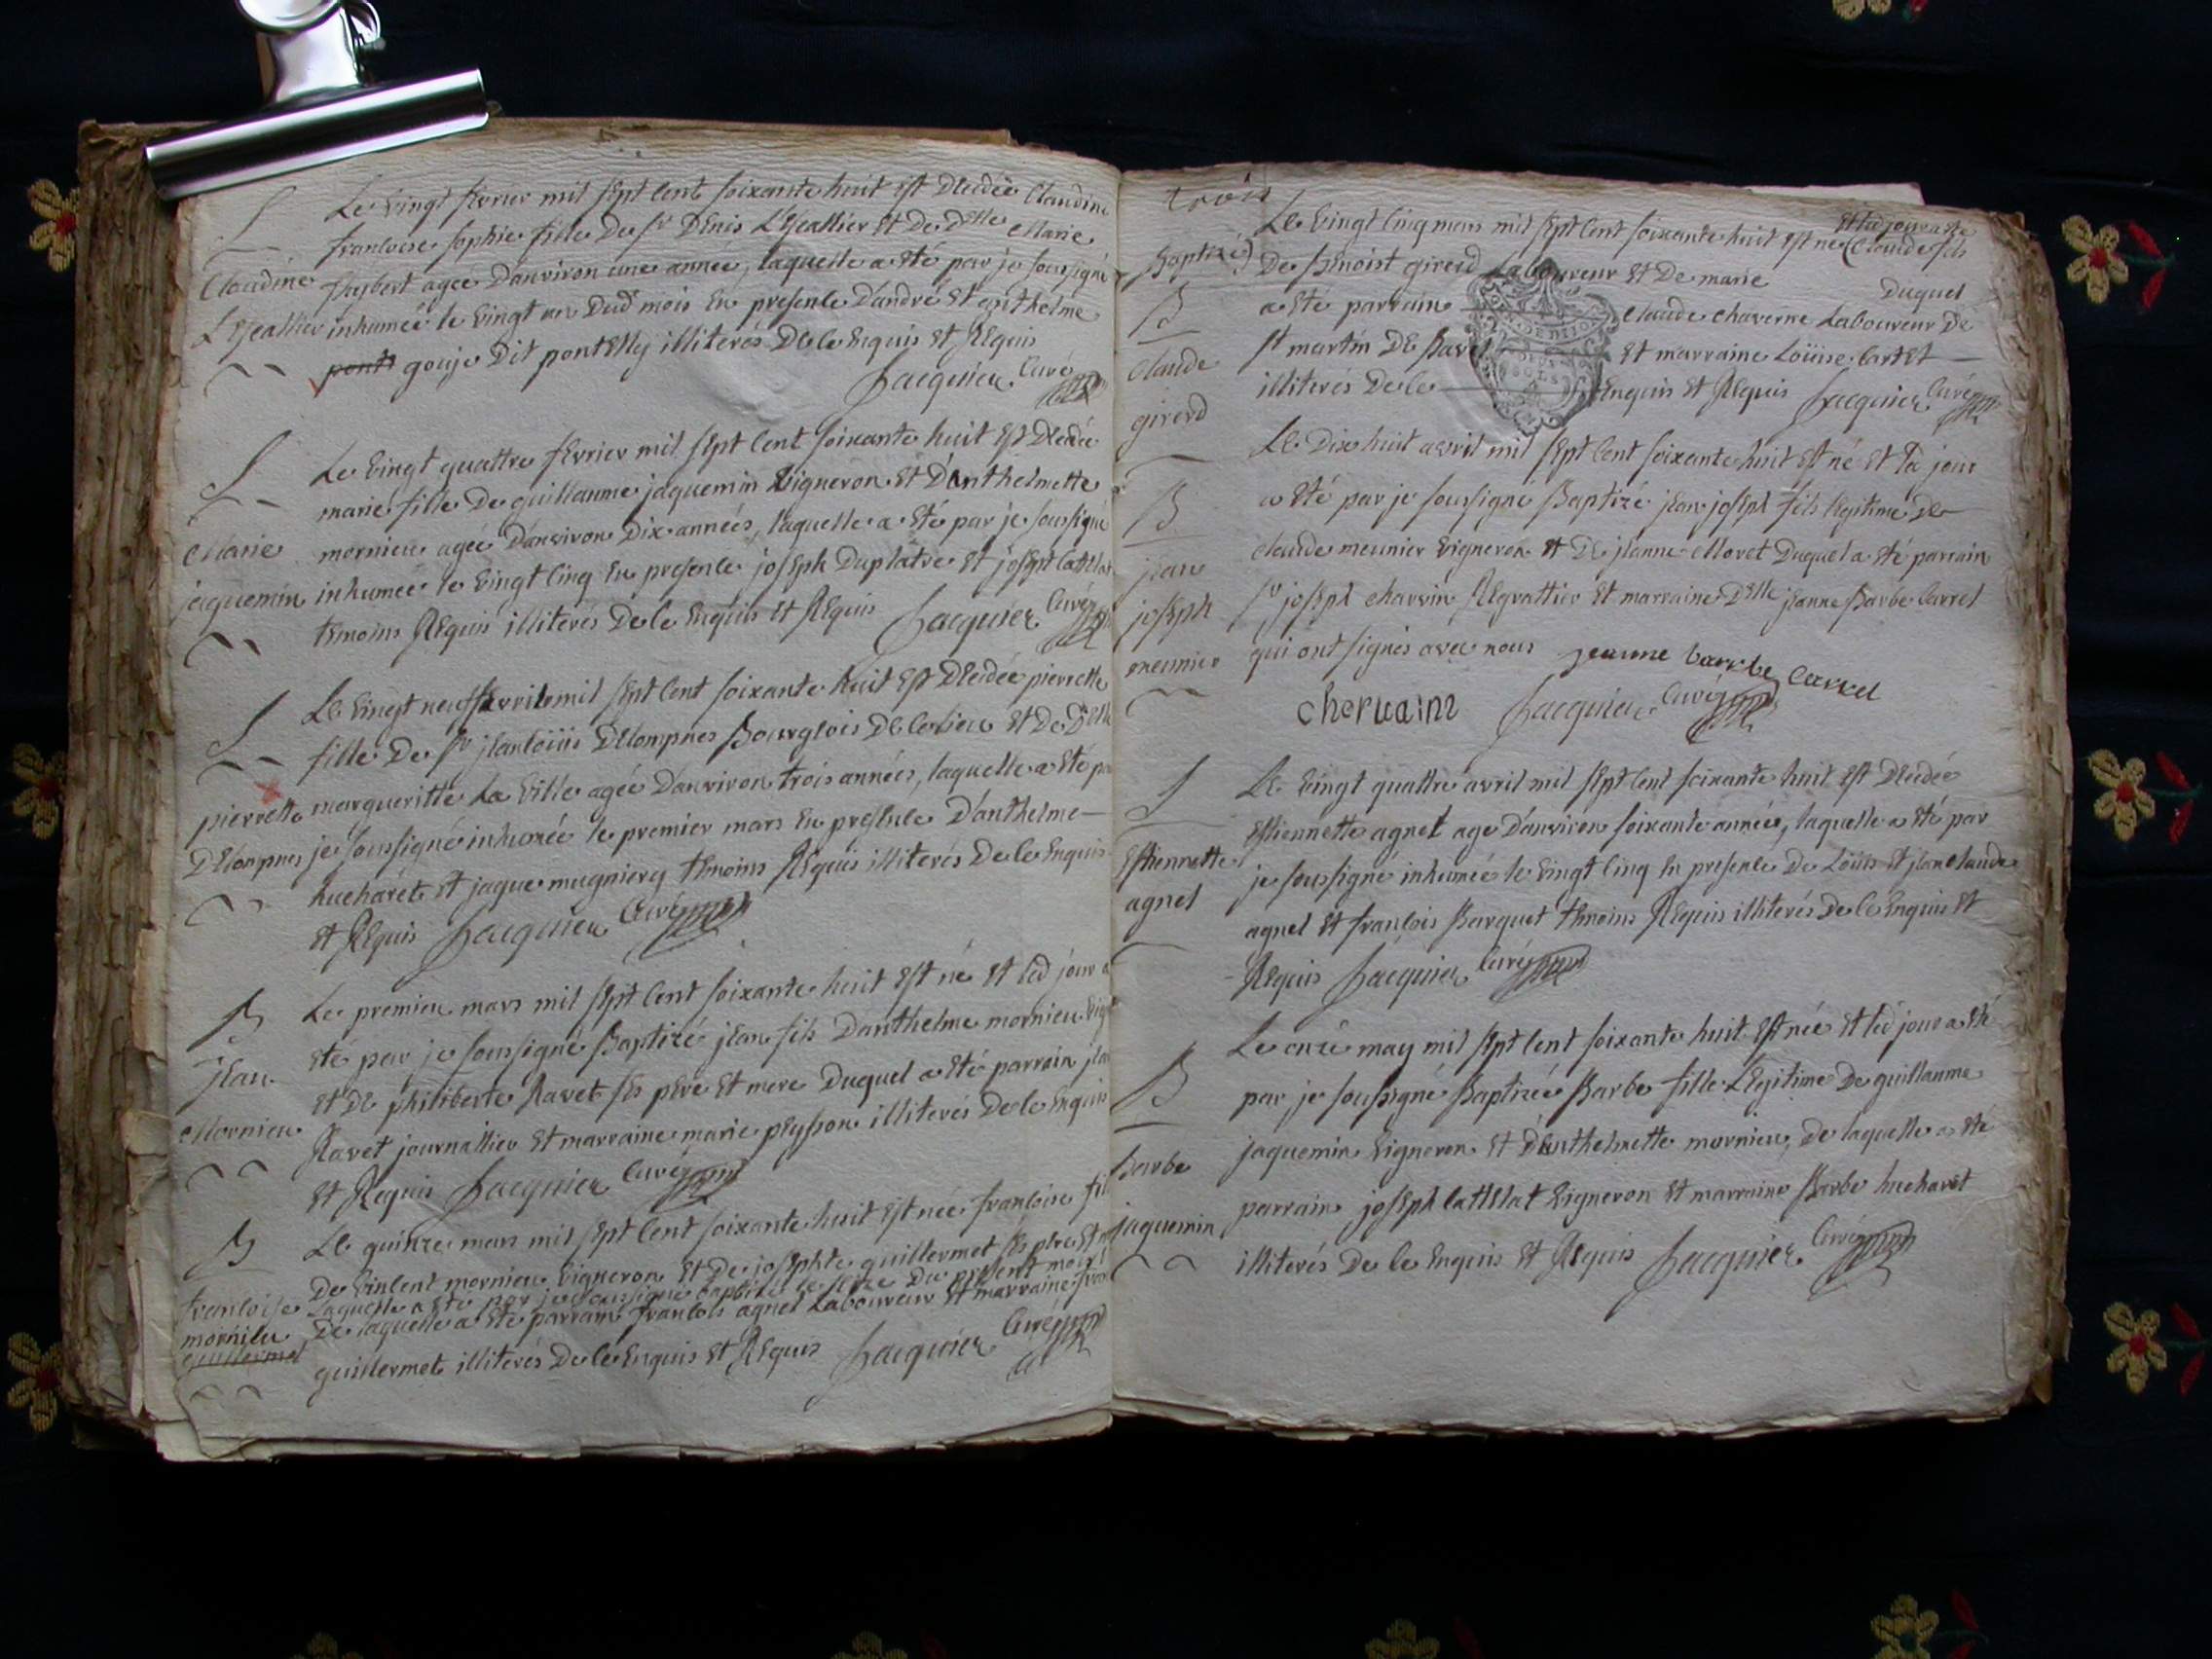 S
Le vingt fevrier mil sept cent soixante huit est decedée Claudine
francoise sophie fille De sr Denis L'hyeallier et De Delle Marie
Claudine
hybert agée Danviron une année, laquelle a eté par je soussigné
inhumée le vingt un Dud mois en presence D'andré et Anthelme
ponts gouje Dit pontElly illiterés De ce Enquis et Requis
Jacquier Curé
S
Le vingt quattre fevrier mil sept cent soixante huit est Decedée
marie fille De guillaume jaquemin Vigneron et D'anthelmette
Marie
mornieu agée D'anviron Dix années, laquelle a eté par je soussigné
jaquemin
inhumée le vingt cinq En presence joseph Duplatre et joseph
temoins Requis illiterés De ce Enquis et Requis Jacquier Curé
S
Le vingt neuf fevrier mil sept cent soixante huit est Decedée pierrette
fille De sr jean loüis Delompnes Bourgeois De ce lieu et De Delle
pierrette
margueritte La Ville agée D'anviron trois années, laquelle a eté
Delompnes
je soussigné inhumée le premier mars En presence D'anthelme
hucharet et jaque mugniery temoins Requis illiterés De ce Enquis
et Requis Jacquier Curé
B
Le premier mars mil sept cent soixante huit est né et led jour a
jean
eté par je soussigné Baptizé jean fils D'anthelme mornieu
et De philiberte Ravet ses pere et mere Duquel a eté parrain
Mornieu
Ravet journallier et marraine marie peysson illiterés De ce Enquis
et Requis Jacquier Curé
B
Le quinze mars mil sept cent soixante huit est née francoise
De Vincent mornieu Vigneron et De josephte guillermet ses pere et
francoise
Laquelle a eté par je soussigné baptizé le seize Du present mois
mornieu
De laquelle a eté parrain francois agnel Laboureur et marraine
guillermet
guillermet illiterés De ce Enquis et Requis Jacquier Curé
trois
Le vingt cinq mars mil sept cent soixante huit est né (Claude fils
et led jour a eté
Baptizé)
De Benoist girerd Laboureur et De marie Duquel
B
a eté parrain Claude chaverne Laboureur De
Claude
st martin De Bavel et marraine Loüise Cartet
girerd
illiterés De ce Enquis et Requis Jacquier Curé
B
Le Dix huit avril mil sept cent soixante huit est né et led jour
a eté par je soussigné Baptizé jean joseph fils legitime De
jean
claude meunier Vigneron et De jeanne Moret Duquel a eté parrain
joseph
sr joseph charvin Regrattier et marraine Delle jeanne Barbe Carrel
meunier
qui ont signés avec nous jeanne barbe carrel
chervain Jacquier Curé
S
Le vingt quattre avril mil sept cent soixante huit est Decedée
Estiennette agnel age D'anviron soixante année, laquelle a eté par
Estiennette
je soussigné inhumée le vingt cinq En presence De Loüis et jean claude
agnel
agnel et francois Barquet temoins Requis illiterés De ce Enquis et
Requis Jacquier Curé
B
Le onze may mil sept cent soixante huit est née et led jour a eté
par je soussigné Baptizée Barbe fille Legitime De guillaume
jaquemin Vigneron et D'Anthelmette mornieu, De laquelle a eté
Barbe
parrain joseph cattelat Vigneron et marraine Barbe hucharet
jaquemin
illiterés De ce Enquis et Requis Jacquier Curé